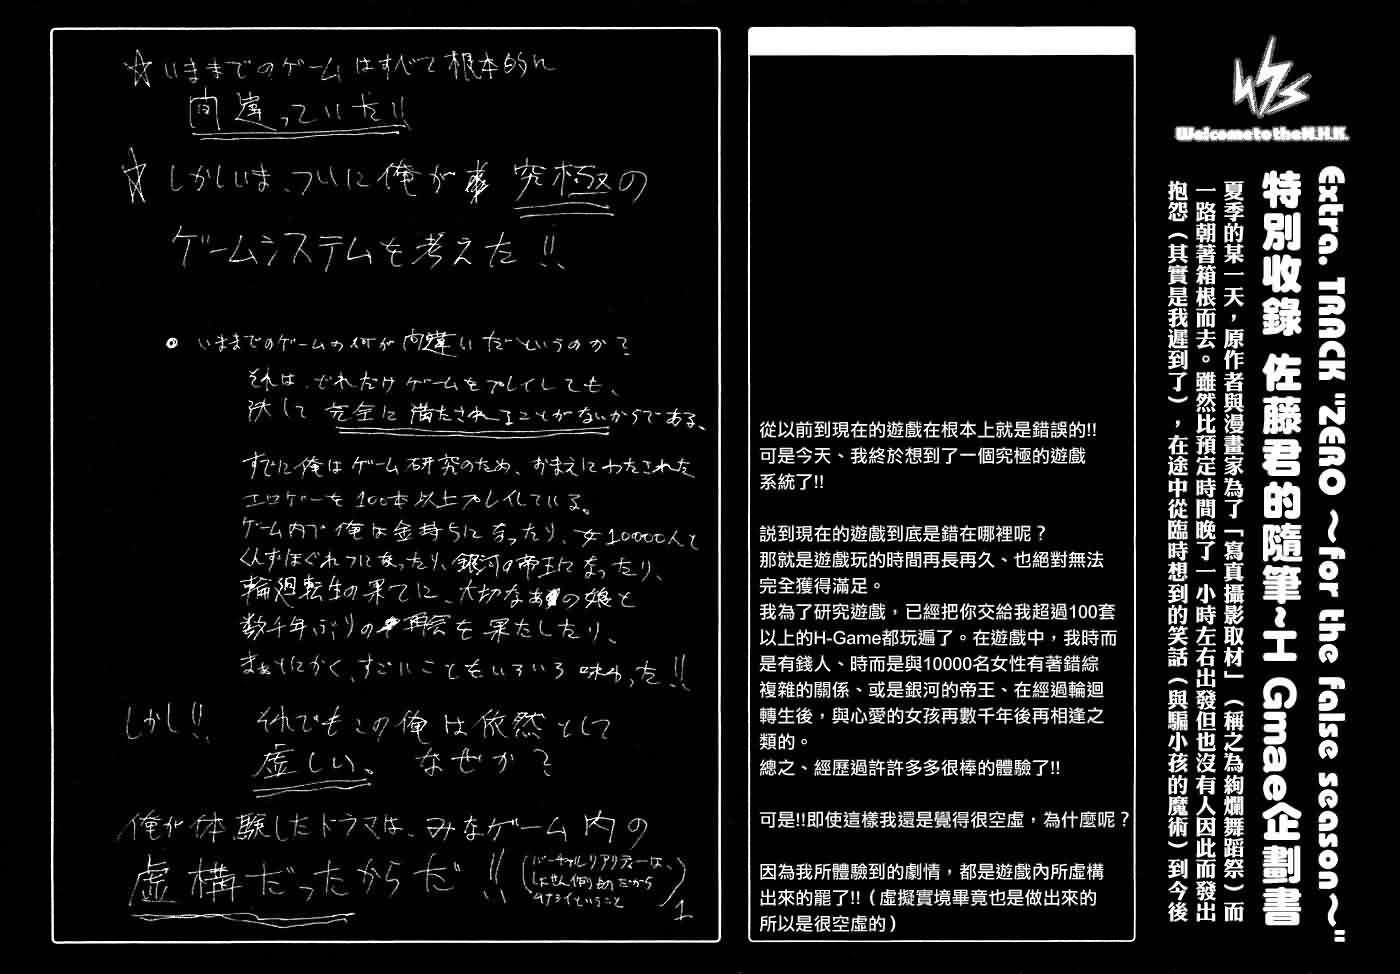 Welcome to the N.H.K.
Extra. TRACK "ZERO ～for the false season～"
特別收錄 佐藤君的隨筆~エ Gmae企劃書
夏季的某一天，原作者與漫畫家為了「寫真攝影取材」（稱之為絢爛舞蹈祭）而
一路朝著箱根而去。雖然比預定時間晚了一小時左右出發但也沒有人因此而發出
抱怨（其實是我遲到了），在途中從臨時想到的笑話（與騙小孩的魔術）到今後
從以前到現在的遊戲在根本上就是錯誤的!!
可是今天、我終於想到了一個究極的遊戲
系統了!!
說到現在的遊戲到底是錯在哪裡呢？
那就是遊戲玩的時間再長再久、也絕對無法
完全獲得滿足。
我為了研究遊戲，已經把你交給我超過100套
以上的H-Game都玩遍了。在遊戲中，我時而
是有錢人、時而是與10000名女性有著錯綜
複雜的關係、或是銀河的帝王、在經過輪迴
轉生後，與心愛的女孩再數千年後再相逢之
類的。
總之、經歷過許許多多很棒的體驗了!!
可是!!即使這樣我還是覺得很空虛，為什麼呢？
因為我所體驗到的劇情，都是遊戲內所虛構
出來的罷了!!（虛擬實境畢竟也是做出來的
所以是很空虛的）
☆いままでのゲームはすべて根本的に
間違っていた!!
☆しかしいま、ついに俺が究極の
ゲームシステムを考えた!!
○いままでのゲームの何が間違いだというのか？
それは、どれだけゲームをプレイしても、
決して完全に満たされることがないからである。
すでに俺はゲーム研究のため、おまえにわたされた
エロゲーを100本以上プレイしている。
ゲーム内で俺は金持ちになったり、女10000人と
くんずほぐれつになったり、銀河の帝王になったり、
輪廻転生の果てに、大切なあの娘と
数千年ぶりの再会を果たしたり、
まぁとにかく、すごいこともいろいろ味わった!!
しかし!! それでもこの俺は依然として
虚しい。なぜか？
俺が体験したドラマは、みなゲーム内の
虚構だったからだ!!
(バーチャルリアリティーは、
しょせん偽物だから
ムナシイということ)
1